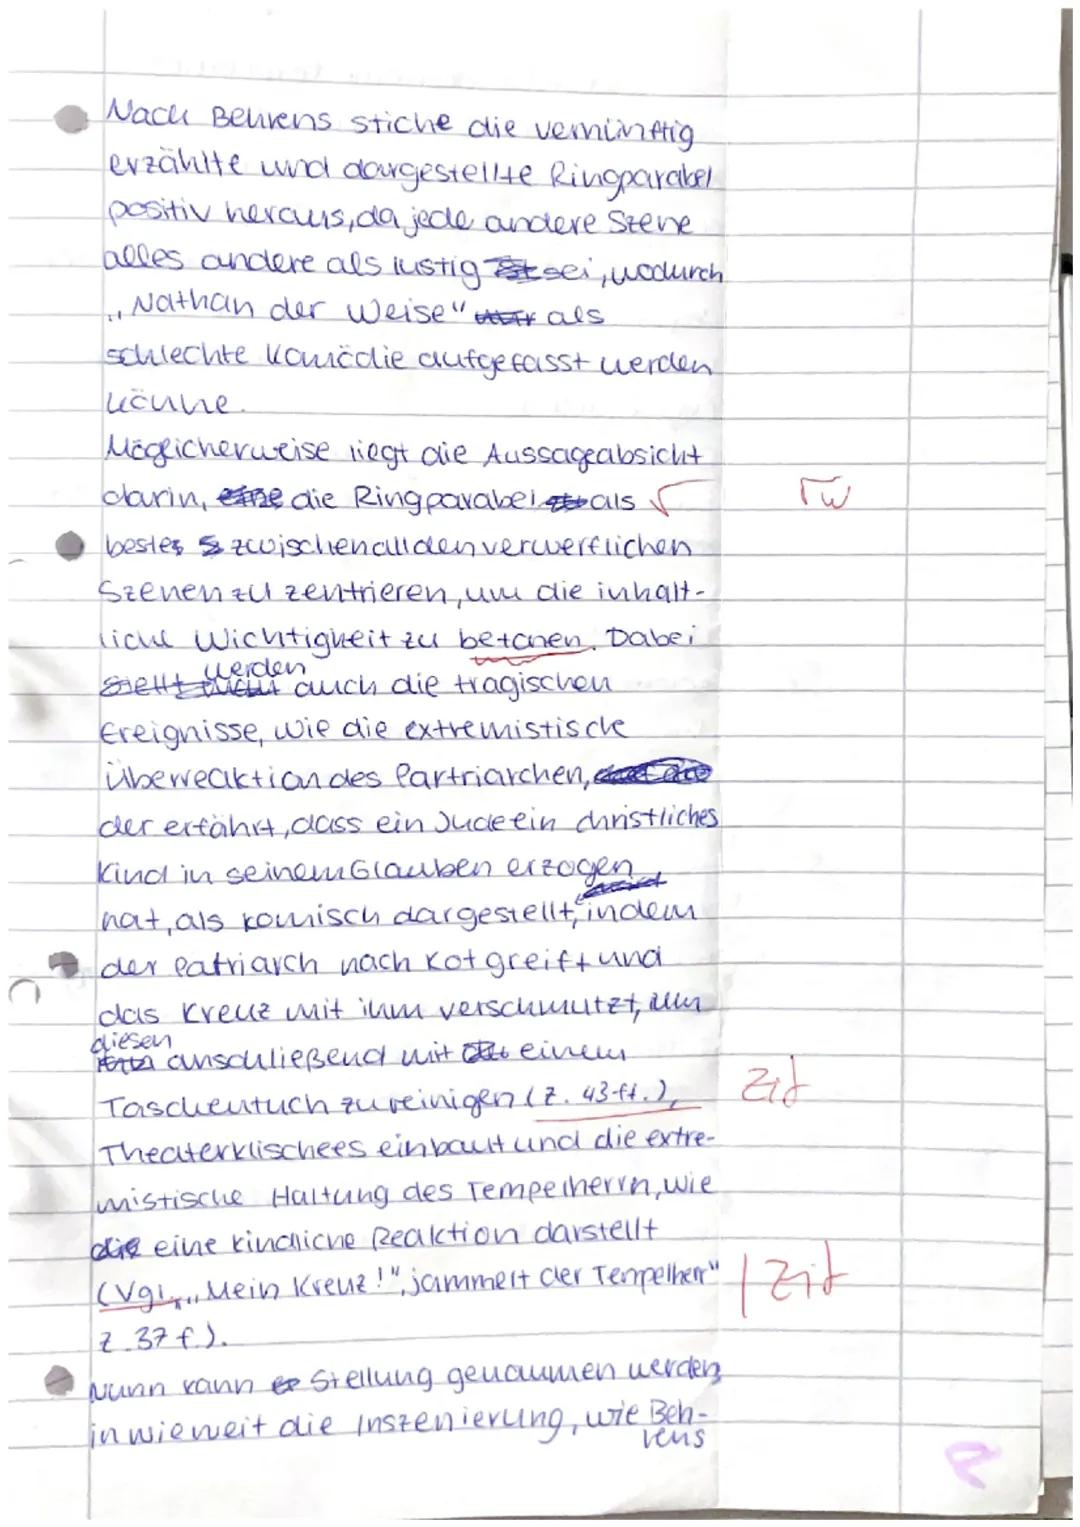 Nach Behrens stiche die vernünftig
erzählte und dargestellte Ringparabel
positiv heraus, da jede andere Szene
alles andere als lustig ist sei, wodurch
„Nathan der Weise" als
schlechte Komödie aufgefasst werden
könne.
Möglicherweise liegt die Aussageabsicht
darin, eine die Ringparabel als √ rw
bestes zwischen all den verwerflichen
Szenen zu zentrieren, um die inhalt-
liche Wichtigkeit zu betonen. Dabei
werden
auch die tragischen
Ereignisse, wie die extremistische
Überreaktion des Partriarchen,
der erfährt, dass ein Jude ein christliches
Kind in seinem Glauben erzogen
hat, als komisch dargestellt, indem
der Patriarch nach Kot greift und
das Kreuz mit ihm verschmutzt, um
diesen
anschließend mit einem
Taschentuch zu reinigen (Z. 43 ff.), Zit
Theaterklischees einbaut und die extre-
mistische Haltung des Tempelherrn, wie
die eine kindliche Reaktion darstellt
(Vgl. „„Mein Kreuz!", jammert der Tempelherr" | Zit
Z. 37 f.).
Nunn kann Stellung genommen werden,
inwieweit die Inszenierung, wie Beh-
rens